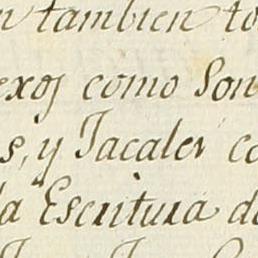 n tambien to
exos como Son
s, y Jacales co
la Escritura de